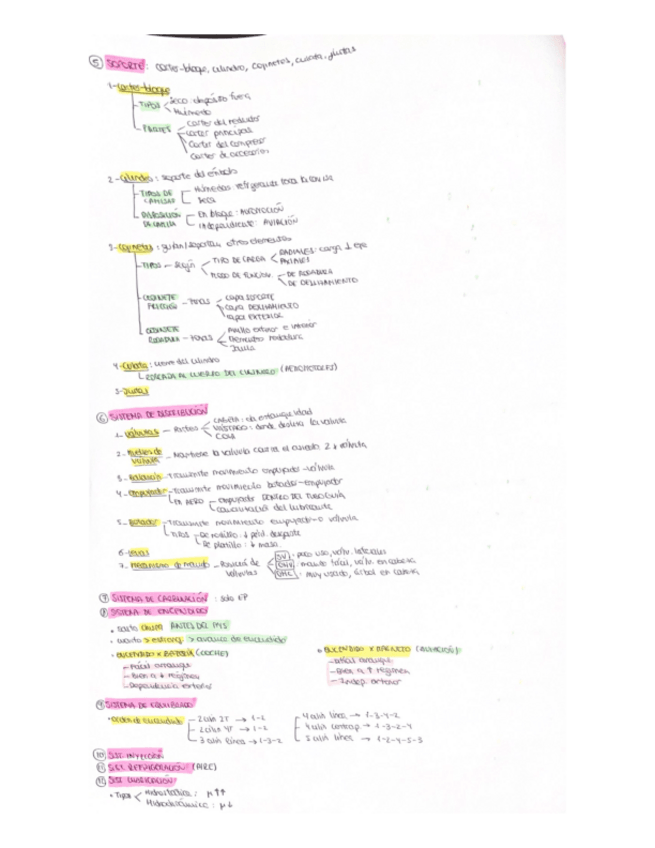 ⑤ SOPORTE: carter-bloque, cilindro, cojinetes, culata, juntas
1- Carter-bloque
TIPOS Seco: depósito fuera
Húmedo
PARTES Carter del reductor
Carter principal
Carter del compresor
Carter de accesorios
2- Cilindro: soporte del
TIPOS DE CAMISAS Húmedas: refrigerante toca la
Seca
DISPOSICIÓN En bloque: AUTOMOCIÓN
Independiente: AVIACIÓN
3- Cojinetes: guían/soportan otros elementos
TIPOS - Según TIPO DE CARGA RADIALES: carga ⊥ eje
AXIALES
MODO DE FUNCION. DE RODADURA
DE DESLIZAMIENTO
COJINETE FRICCIÓN - PARTES capa SOPORTE
capa DESLIZAMIENTO
capa EXTERIOR
COJINETE RODADURA - PARTES Anillo exterior e interior
Elementos rodadura
Jaula
4- Culata: cierre del cilindro
ROSCADA AL CUERPO DEL CILINDRO (AEROMOTORES)
5- Juntas
⑥ SISTEMA DE DISTRIBUCIÓN
1- Válvulas - Partes CABEZA: da estanqueidad
VÁSTAGO: donde desliza la válvula
COLA
2- Muelles de válvula - Mantiene la válvula contra el asiento
3- Balancín - Transmite movimiento empujador-válvula
4- Empujador - Transmite movimiento botador-empujador
EN AERO empujador DENTRO DEL TUBO GUÍA
canalización del lubricante
5- Botador - Transmite movimiento empujador o válvula
TIPOS De rodillo: ↓ desgaste
De platillo: ↓ masa
6- Levas
7- Mecanismo de mando - Posición de válvulas SV: poco uso, válv. laterales
OHV: válv. en cabeza
OHC: muy usado, árbol en cabeza
⑦ SISTEMA DE CARBURACIÓN: solo EP
⑧ SISTEMA DE ENCENDIDO
• Salto CHISPA ANTES DEL PMS
• cuanto > estrang. > avance de encendido
• ENCENDIDO X BATERÍA (COCHE)
- Fácil arranque
- Bien a ↓ régimen
- Dependencia exterior
• ENCENDIDO X MAGNETO (AVIACIÓN):
- difícil arranque
- Bien a ↑ régimen
- Indep. exterior
⑨ SISTEMA DE EQUILIBRADO
• Orden de encendido 2 cilin 2T → 1-2
2 cilin 4T → 1-2
3 cilin línea → 1-3-2
4 cilin línea → 1-3-4-2
4 cilin contrap → 1-3-2-4
5 cilin línea → 1-2-4-5-3
⑩ SIST. INYECCIÓN
⑪ SIST. REFRIGERACIÓN (AIRE)
⑫ SIST. LUBRICACIÓN
• Tipos Hidrostática: μ ↑↑
Hidrodinámica: μ ↓